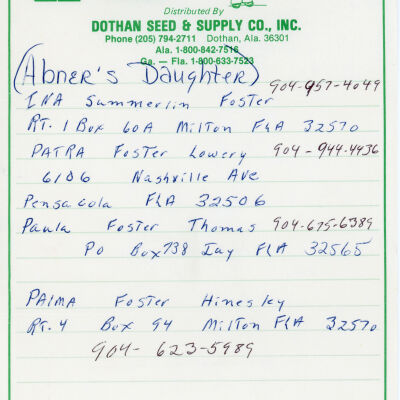 Distributed By
DOTHAN SEED & SUPPLY CO., INC.
Phone (205) 794-2711 Dothan, Ala. 36301
Ala. 1-800-842-7516
Ga. — Fla. 1-800-633-7523
(Abner's Daughter) 904-957-4049
INA Summerlin Foster
RT. 1 Box 60A Milton FlA 32570
PATRA Foster Lowery 904-944-4436
6106 Nashville Ave
Pensacola FlA 32506
Paula Foster Thomas 904-675-6389
PO Box 738 Jay FlA 32565
PAlMA Foster Hinesley
RT. 4 Box 94 Milton FlA 32570
904-623-5989